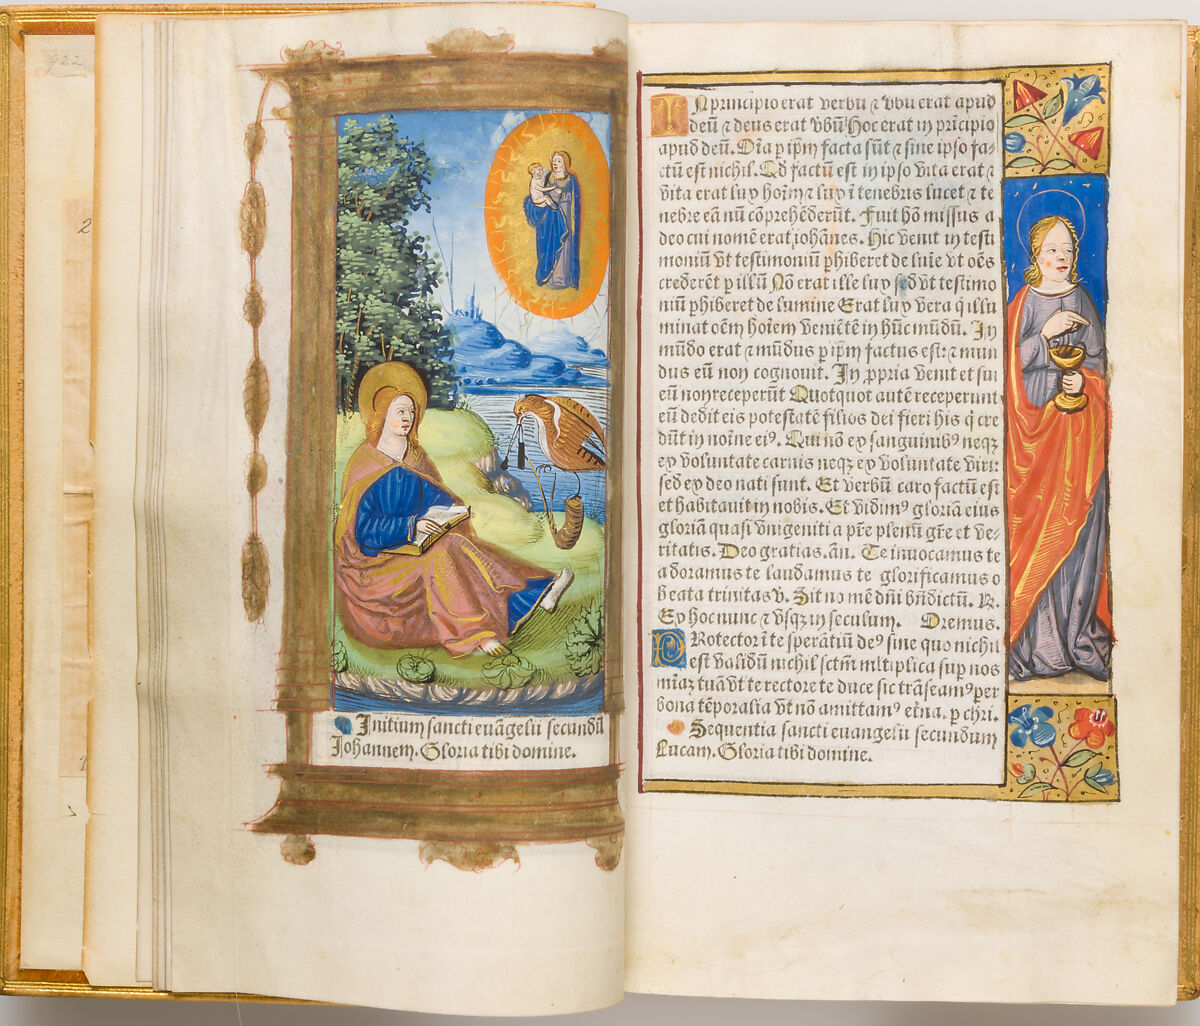 922
2
Initium sancti euāgelii secundū
Johannem. Gloria tibi domine.
IN principio erat verbū ⁊ vbū erat apud
deū ⁊ deus erat vbū Hoc erat in prīcipio
apud deū. Oīa p ipm̄ facta sūt ⁊ sine ipso fa-
ctū est nichil. Qd factū est in ipso vita erat ⁊
vita erat lux hoīm ⁊ lux ī tenebris lucet ⁊ te
nebre eā nū cōprehēderūt. Fuit hō missus a
deo cui nomē erat iohānes. Hic venit in testi
monium vt testimoniū phiberet de luīe vt oēs
crederēt p illū Nō erat ille lux sed vt testimo
niū phiberet de lumine Erat lux vera q̄ illu
minat oēm hoīem veniētē in hūc mūdū. In
mūdo erat ⁊ mūdus p ipm̄ factus est: ⁊ mun
dus eū non cognouit. In ppria venit et sui
eū non receperūt Quotquot autē receperunt
eū dedit eis potestatē filios dei fieri his q̄ cre
dūt in noīne eiꝰ. Qui nō ex sanguinibꝰ neqꝫ
ex voluntate carnis neqꝫ ex voluntate viri:
sed ex deo nati sunt. Et verbū caro factū est
et habitauit in nobis. Et vidimꝰ gloriā eius
gloriā quasi vnigeniti a pr̄e plenū gr̄e et ve-
ritatis. Deo gratias. añ. Te inuocamus te
adoramus te laudamus te glorificamus o
beata trinitas v. Sit no mē dn̄i bn̄dictū. R.
Ex hoc nunc ⁊ vsqꝫ in seculum. Oremus.
PRotector ī te sperātiū deꝰ sine quo nichil
est validū nichil sctm̄ mltiplica sup nos
mīaꝫ tuā vt te rectore te duce sic trāseamꝰ per
bona tēporalia vt nō amittamꝰ etn̄a. p chri.
Sequentia sancti euangelii secundum
Lucam. Gloria tibi domine.